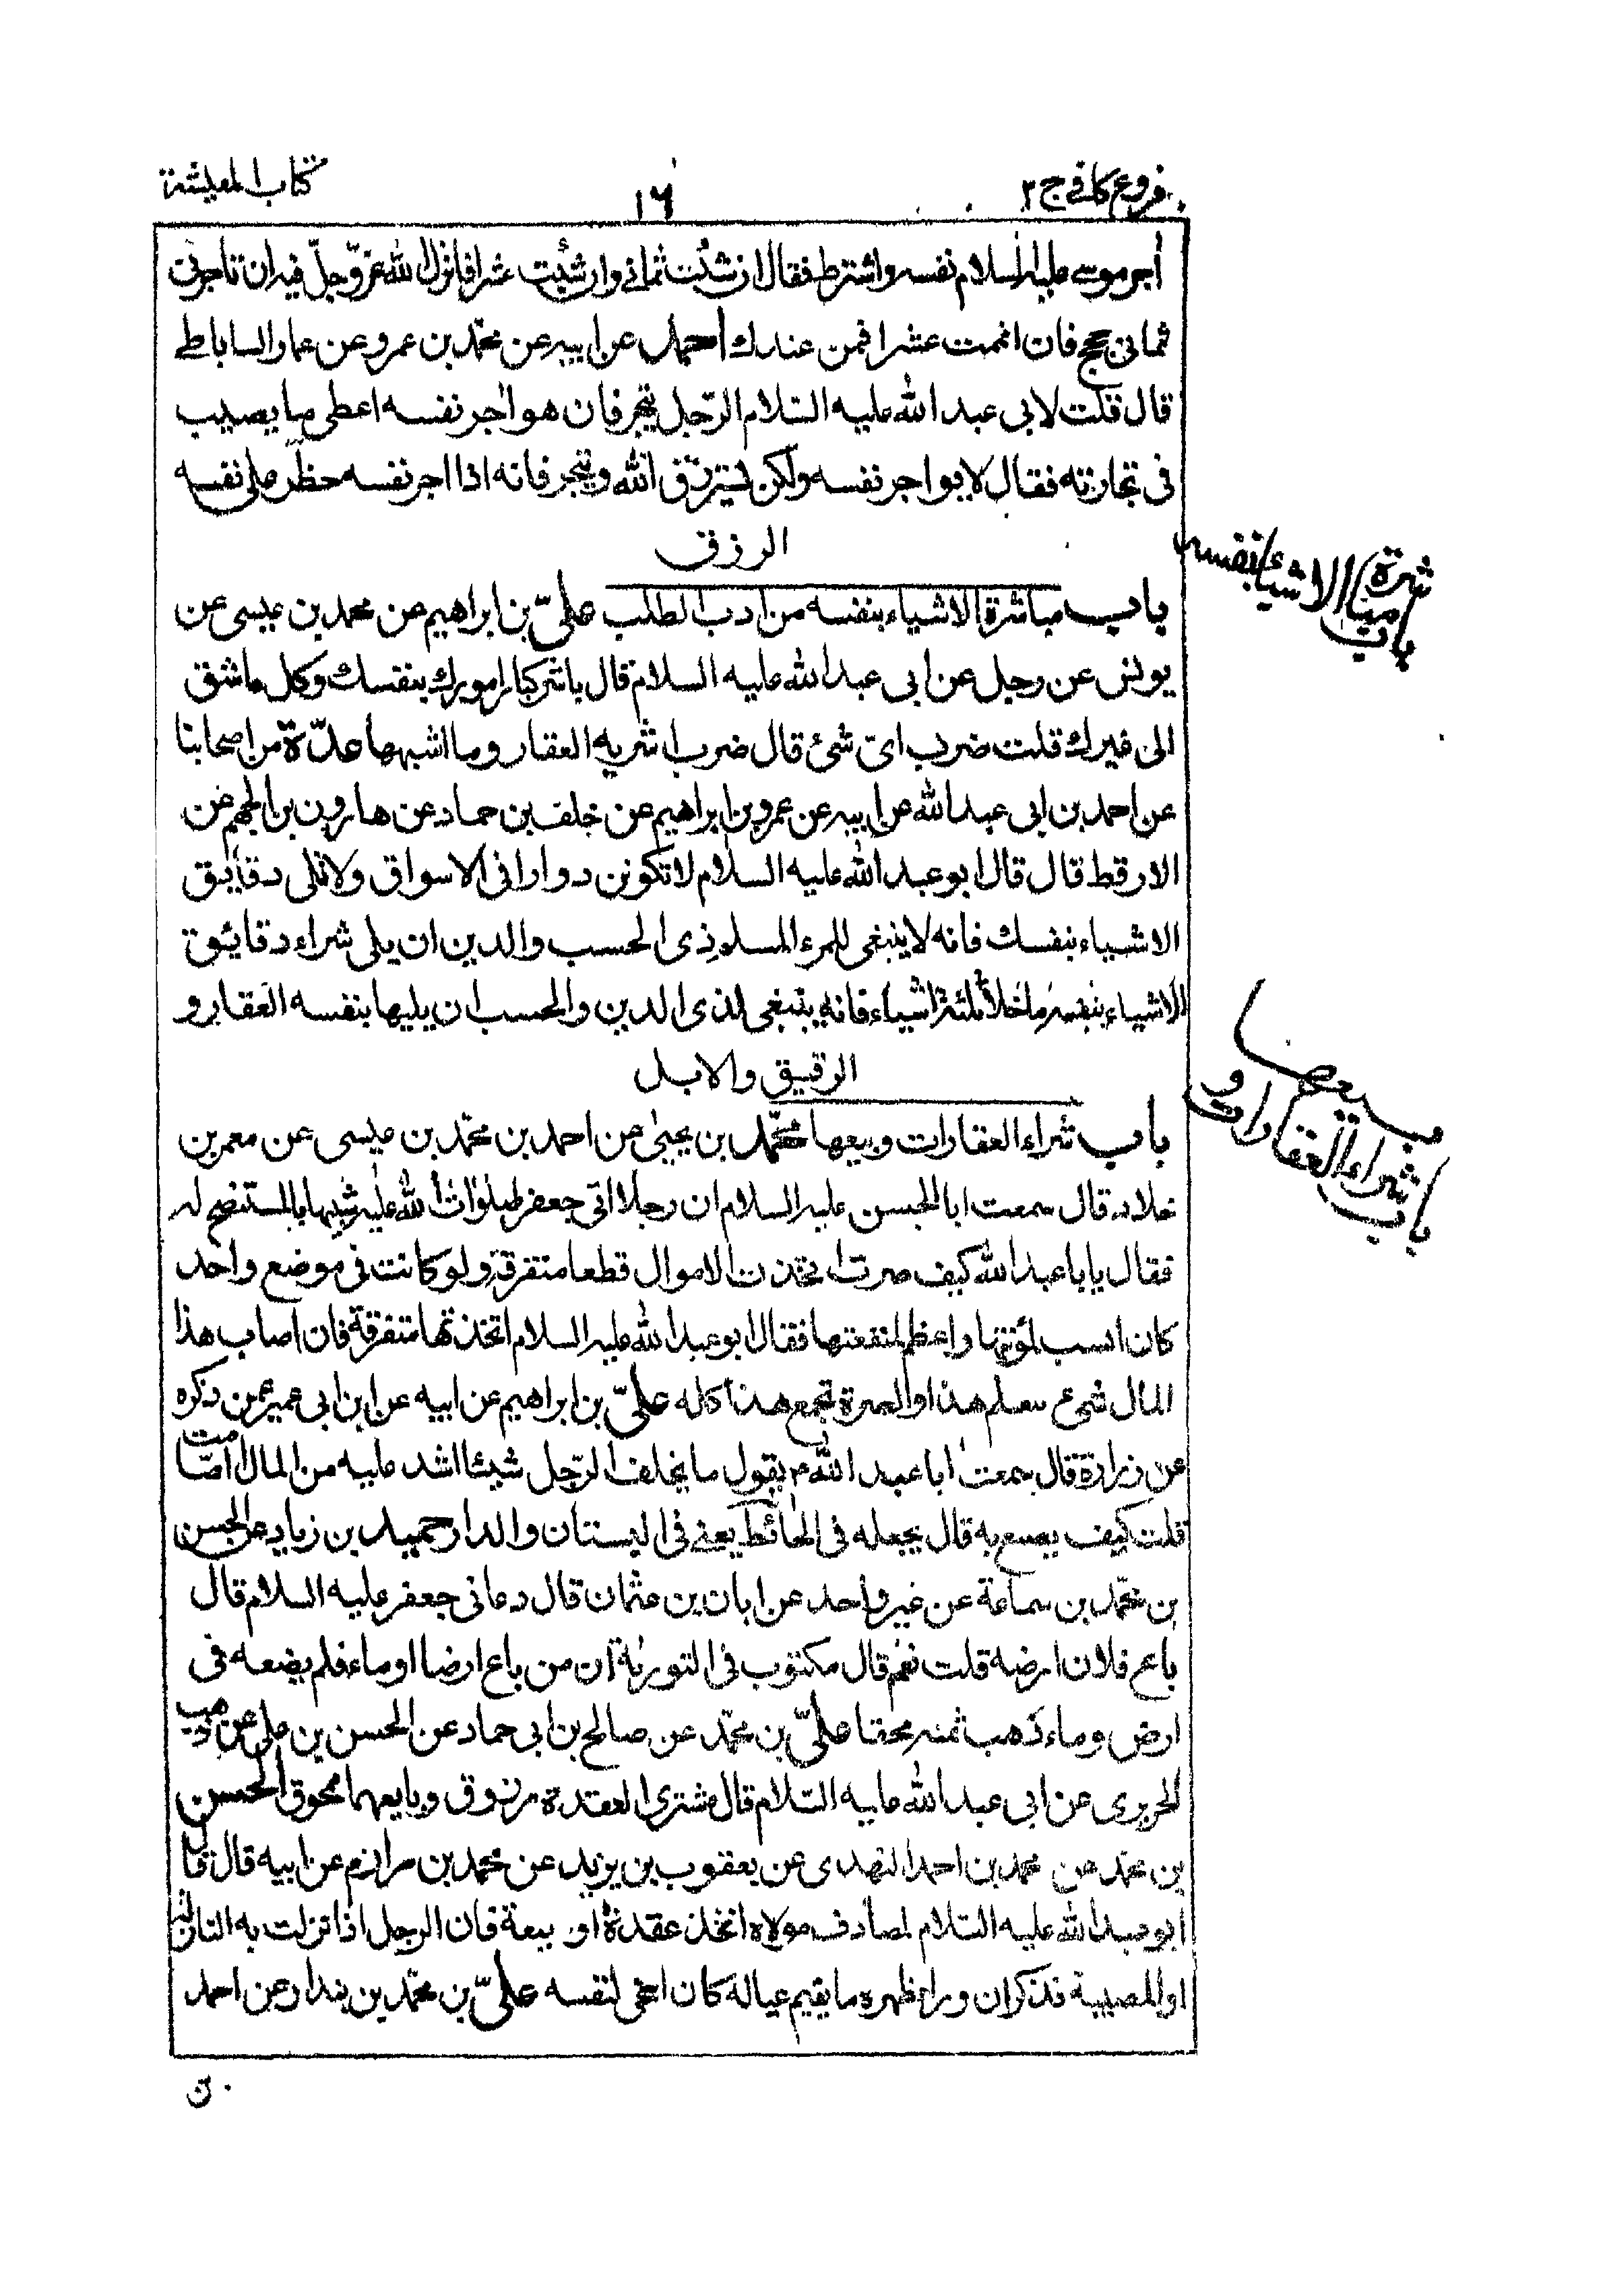 فروع كافي ج ٢
١٦
كتاب المعيشة
أجر موسى عليه السلام نفسه واشترط فقال ان شئت ثماني وان شئت عشرا فانزل الله عز وجل فيه ان تاجرني
ثماني حجج فان اتممت عشرا فمن عندك احمد عن ابيه عن محمد بن عمرو عن عمار الساباطي
قال قلت لابي عبد الله عليه السلام الرجل يتجر فان هو اجر نفسه اعطى ما يصيب
في تجارته فقال لا يواجر نفسه ولكن يسترزق الله ويتجر فانه اذا اجر نفسه حظر على نفسه
الرزق
باب مباشرة الاشياء بنفسه من ادب الطلب علي بن ابراهيم عن محمد بن عيسى عن
يونس عن رجل عن ابي عبد الله عليه السلام قال باشر كبار امورك بنفسك وكل ما شق
الى غيرك قلت ضرب اي شئ قال ضرب اشرية العقار وما اشبهها عدّة من اصحابنا
عن احمد بن ابي عبد الله عن ابيه عن عمرو بن ابراهيم عن خلف بن حماد عن هارون بن الجهم عن
الارقط قال قال ابو عبد الله عليه السلام لا تكونن دوارا في الاسواق ولا تلي دقايق
الاشياء بنفسك فانه لا ينبغي للمرء المسلم ذى الحسب والدين ان يلي شراء دقايئق
الاشياء بنفسه ما خلا ثلثة اشياء فانه ينبغي لذى الدين والحسب ان يليها بنفسه العقار و
الرقيق والابل
باب شراء العقارات وبيعها محمّد بن يحيى عن احمد بن محمّد بن عيسى عن معمر بن
خلاد قال سمعت ابا الحسن عليه السلام ان رجلا اتى جعفر صلوات الله عليه شبيها بالمستنصح له
فقال يابا عبد الله كيف صرت اتخذت الاموال قطعا متفرقة ولو كانت في موضع واحد
كان ايسر لمؤنتها واعظم لمنفعتها فقال ابو عبد الله عليه السلام اتخذتها متفرقة فان اصاب هذا
المال شئ سلم هذا والصرة تجمع هذا كله علىّ بن ابراهيم عن ابيه عن ابن ابي عمير عمن ذكره
عن زرارة قال سمعت ابا عبد الله ع يقول ما يخلف الرّجل شيئا اشد عليه من المال الصامت
قلت كيف يصنع به قال يجعله في الحائط يعني في البستان والدار حميد بن زياد عن الحسن
بن محمّد بن سماعة عن غير واحد عن ابان بن عثمان قال دعاني جعفر عليه السلام قال
باع فلان ارضه قلت نعم قال مكتوب في التورية ان من باع ارضا او ماء فلم يضعه في
ارض وماء ذهب ثمنه محقا علىّ بن محمّد عن صالح بن ابي حماد عن الحسن بن علي عن وهب
الحريرى عن ابي عبد الله عليه السّلام قال مشترى العقدة مرزوق وبايعها ممحوق الحسن
بن محمد عن محمد بن احمد النهدى عن يعقوب بن يزيد عن محمد بن مرازم عن ابيه قال قال
ابو عبد الله عليه السّلام لمصادف مولاه اتخذ عقدة او ضيعة فان الرجل اذا نزلت به النازلة
او المصيبة فذكر ان وراء ظهره ما يقيم عياله كان اسخى لنفسه علىّ بن محمّد بن بندار عن احمد
باب مباشرة الاشياء بنفسه
باب شراء العقارات و
بيعها